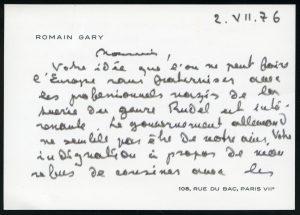 2. VII. 76
ROMAIN GARY
Monsieur
Votre idée que l'on ne peut faire
l'Europe sans fraterniser avec
les professionnels nazis de la
tuerie du genre Rudel est inté-
ressante. Le gouvernement allemand
ne semble pas être de notre avis. Votre
indignation à propos de mon
refus de cousiner avec les
108, RUE DU BAC, PARIS VIIe